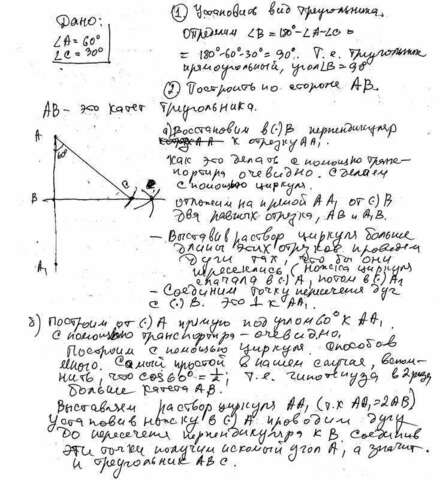 Дано:
∠A = 60°
∠C = 30°
① Установим вид треугольника.
Определим ∠B = 180° - ∠A - ∠C =
= 180° - 60° - 30° = 90°. Т.е. треугольник
прямоугольный, угол B = 90°
② Построить по стороне AB.
AB - это катет треугольника.
а) Восстановим в (·) B перпендикуляр
к отрезку AA₁.
Как это делать с помощью транс-
портира очевидно. Сделаем
с помощью циркуля.
Отложим на прямой AA₁ от (·) B
два равных отрезка, AB и A₁B.
- Выставив раствор циркуля больше
длины этих отрезков проведем
дуги так, что бы они
пересеклись (ножка циркуля
сначала в (·) A, потом в (·) A₁
- Соединим точку пересечения дуг
с (·) B. это ⊥ к AA₁.
A
60°
B
C
A₁
б) Построим от (·) A прямую под углом 60° к AA₁
с помощью транспортира - очевидно.
Построим с помощью циркуля. Способов
много. Самый простой в нашем случае, вспом-
нить, что cos 60° = 1/2, т.е. гипотенуза в 2 раза
больше катета AB.
Выставляем раствор циркуля AA₁ (т.к AA₁ = 2AB)
установив ножку в (·) A проводим дугу
до пересечения перпендикуляра к B. Соединив
эти точки получим искомый угол A, а значит
и треугольник ABC.